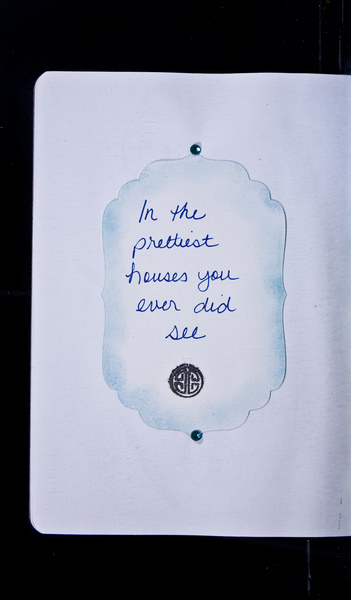 In the
prettiest
houses you
ever did
see